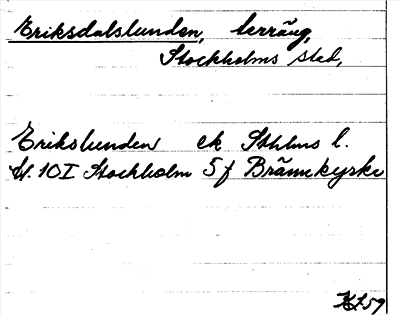 Eriksdalslunden, terräng,
Stockholms stad,
Erikslunden ek Sthlms l.
bl. 10I Stockholm 5f Brännkyrka
59